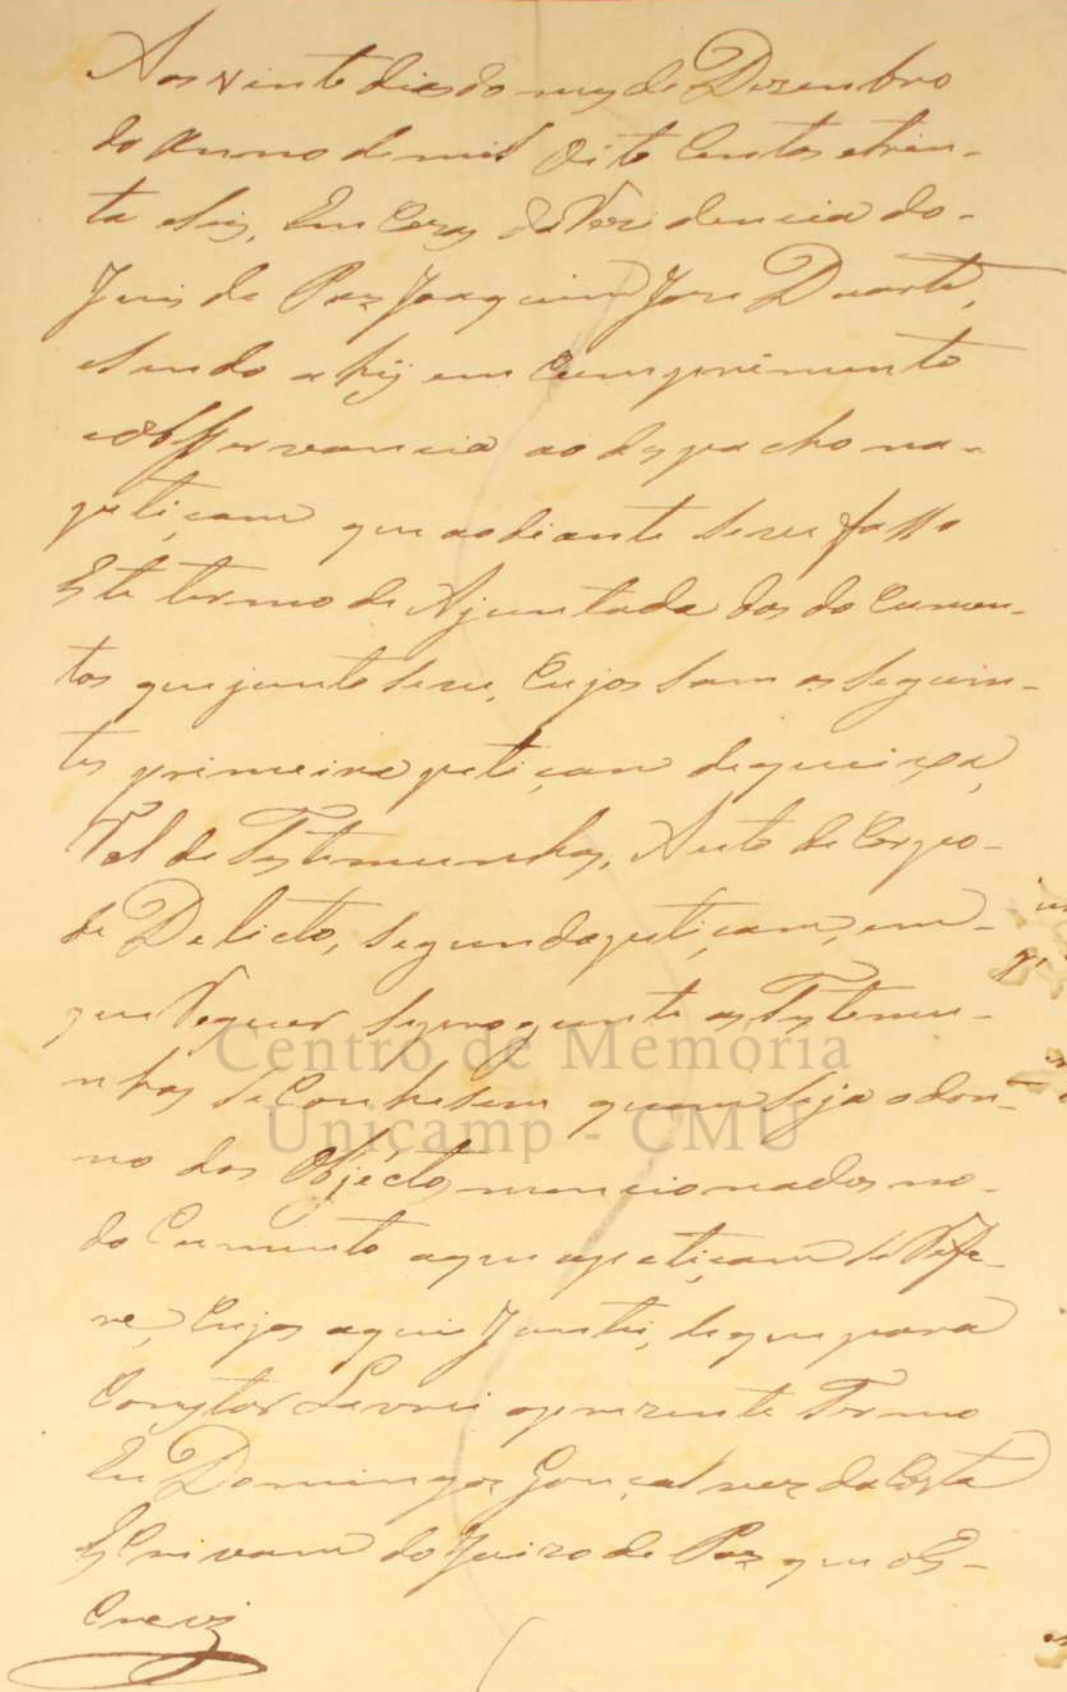 Aos vinte dias do mes de Dezembro
do Anno de mil Oito Centos etrin-
ta eSeis, Em Cazas da Rezidencia do-
Juis de Paz Joaquim Joze Duarte,
eSendo ahy em Cumprimento
eObsservancia ao despacho na-
petiçam que ao diante Seve fasso
Este termo de Ajuntada dos do Cumen-
tos que junto Seve, Cujos Sam os Seguin-
tes primeira petiçam de queixa,
Rol de Testemunhas, Auto de Corpo-
de Delicto, Segunda petiçam, em-
que Requer Sepregunte as Testemu-
nhas Se Conhesem quem Seja o don-
no dos Objectos mencionados no-
do Cumento aque apetiçam Se Refe-
re, Cujos aqui Juntei, de que para
Constar Lavrei oprezente Termo
Eu Domingos Gonçalvez da Costa
EsCrivam do Juizo de Paz que oEs-
Crevi
Centro de Memória
Unicamp - CMU